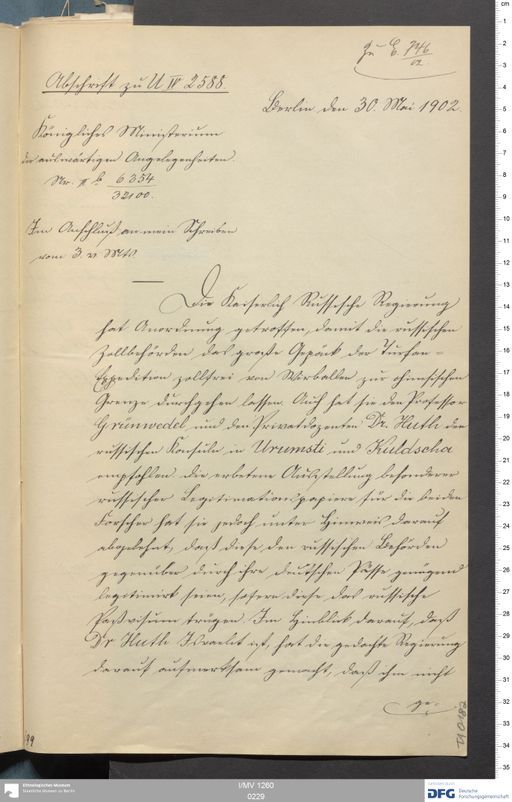 zu E. 746/02.
Abschrift zu U IV 2588.
Berlin den 30. Mai 1902.
Königliches Ministerium
der auswärtigen Angelegenheiten.
Nr. 6354
32100.
Im Anschluß an mein Schreiben
vom 3. v. Mts.
Die Kaiserlich Russische Regierung
hat Anordnung getroffen, damit die russischen
Zollbehörden das große Gepäck der Turfan-
Expedition zollfrei von Wirballen zur chinesischen
Grenze durchgehen lassen. Auch hat sie den Professor
Grünwedel und den Privatdozenten Dr. Huth den
russischen Konsuln in Urumtsi und Kuldscha
empfohlen. Die erbetene Ausstellung besonderer
russischer Legitimationspapiere für die beiden
Forscher hat sie jedoch unter Hinweis darauf
abgelehnt, daß diese den russischen Behörden
gegenüber durch ihre deutschen Pässe genügend
legitimirt seien, sofern diese das russische
Paßvisum trügen. Im Hinblick darauf, daß
Dr Huth Israelit ist, hat die gedachte Regierung
darauf aufmerksam gemacht, daß ihm nicht
ge-
TA 0182
99
cm
1
2
3
4
5
6
7
8
9
10
11
12
13
14
15
16
17
18
19
20
21
22
23
24
25
26
27
28
29
30
31
32
33
34
35
Ethnologisches Museum
Staatliche Museen zu Berlin
I/MV 1260
0229
Gefördert durch
DFG Deutsche
Forschungsgemeinschaft